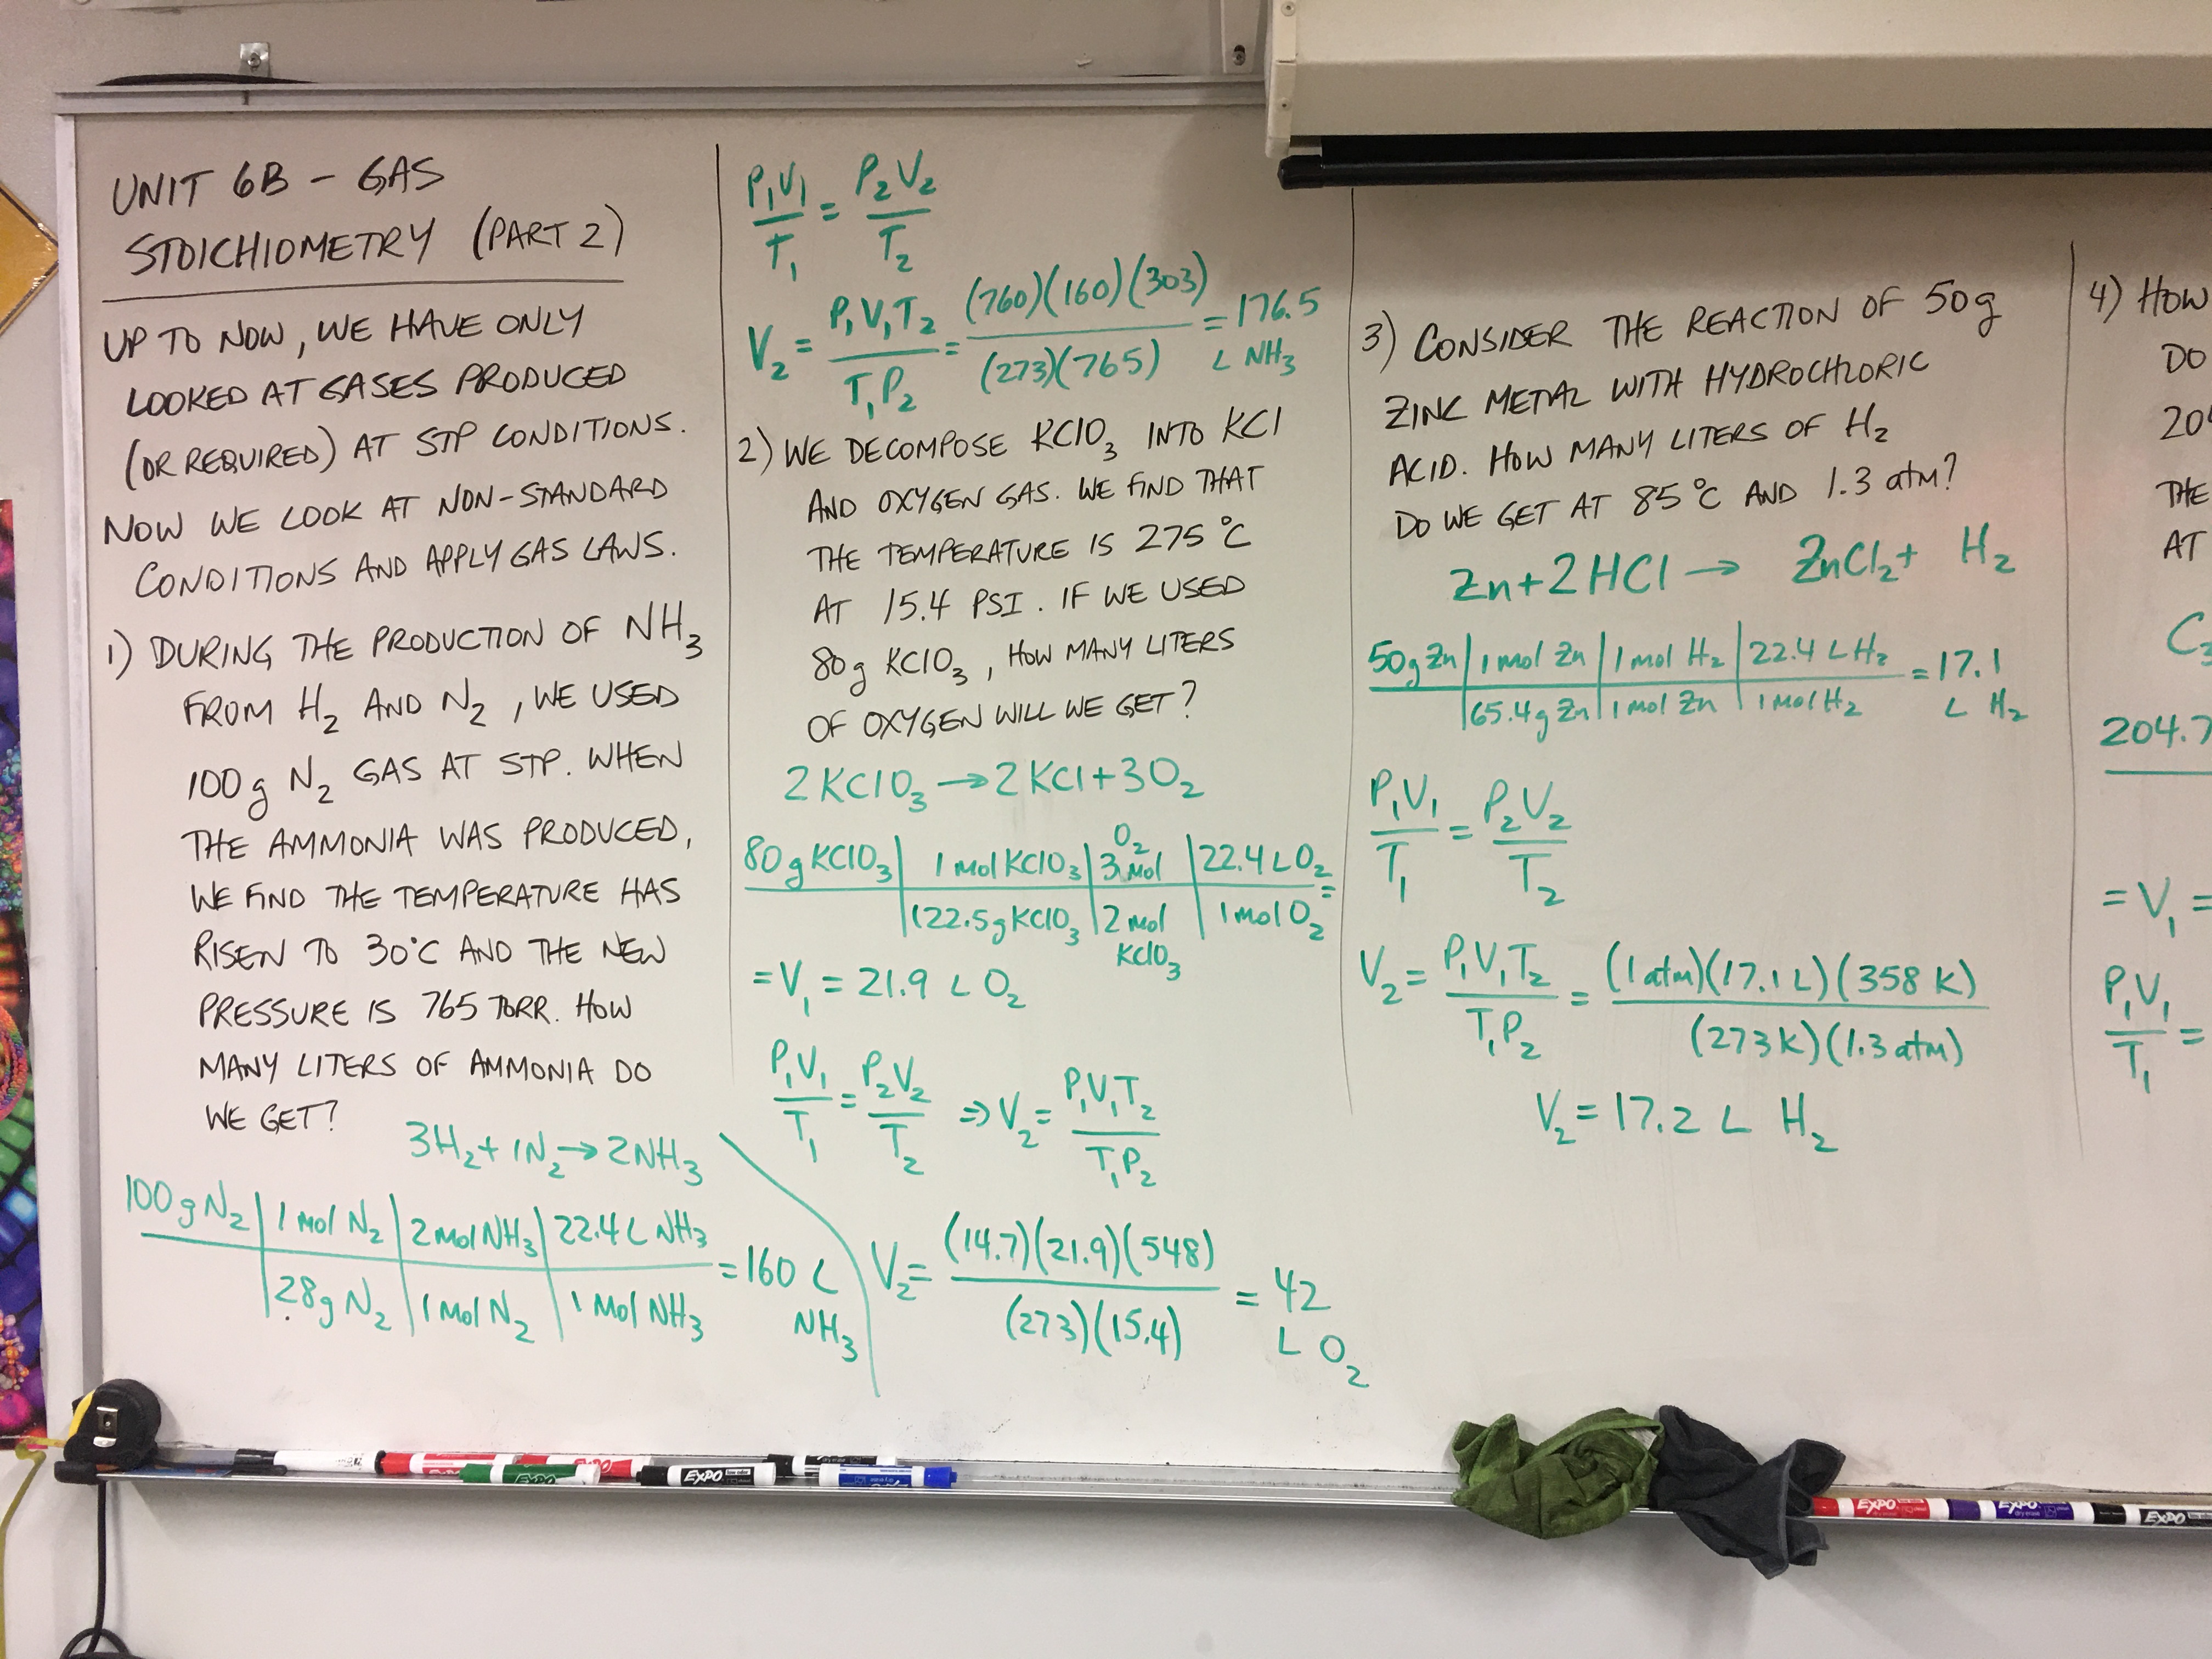 UNIT 6B - GAS
STOICHIOMETRY (PART 2)
UP TO NOW, WE HAVE ONLY
LOOKED AT GASES PRODUCED
(OR REQUIRED) AT STP CONDITIONS.
NOW WE LOOK AT NON-STANDARD
CONDITIONS AND APPLY GAS LAWS.
1) DURING THE PRODUCTION OF NH₃
FROM H₂ AND N₂, WE USED
100g N₂ GAS AT STP. WHEN
THE AMMONIA WAS PRODUCED,
WE FIND THE TEMPERATURE HAS
RISEN TO 30°C AND THE NEW
PRESSURE IS 765 TORR. HOW
MANY LITERS OF AMMONIA DO
WE GET?
3H₂ + 1N₂ → 2NH₃
100g N₂ | 1 mol N₂ | 2 mol NH₃ | 22.4 L NH₃
28g N₂ | 1 mol N₂ | 1 mol NH₃
= 160 L
NH₃
P₁V₁ = P₂V₂
T₁ T₂
V₂ = P₁V₁T₂ = (760)(160)(303) = 176.5
T₁P₂ (273)(765) L NH₃
2) WE DECOMPOSE KClO₃ INTO KCl
AND OXYGEN GAS. WE FIND THAT
THE TEMPERATURE IS 275 °C
AT 15.4 PSI. IF WE USED
80g KClO₃, HOW MANY LITERS
OF OXYGEN WILL WE GET?
2KClO₃ → 2KCl + 3O₂
80g KClO₃ | 1 mol KClO₃ | 3 mol O₂ | 22.4 L O₂ =
122.5g KClO₃ | 2 mol KClO₃ | 1 mol O₂
= V₁ = 21.9 L O₂
P₁V₁ = P₂V₂ ⇒ V₂ = P₁V₁T₂
T₁ T₂ T₁P₂
V₂ = (14.7)(21.9)(548) = 42
(273)(15.4) L O₂
3) CONSIDER THE REACTION OF 50g
ZINC METAL WITH HYDROCHLORIC
ACID. HOW MANY LITERS OF H₂
DO WE GET AT 85 °C AND 1.3 atm?
Zn + 2HCl → ZnCl₂ + H₂
50g Zn | 1 mol Zn | 1 mol H₂ | 22.4 L H₂ = 17.1
65.4g Zn | 1 mol Zn | 1 mol H₂ L H₂
P₁V₁ = P₂V₂
T₁ T₂
V₂ = P₁V₁T₂ = (1 atm)(17.1 L)(358 K)
T₁P₂ (273 K)(1.3 atm)
V₂ = 17.2 L H₂
4) HOW
DO
204
THE
AT
C₃
204.7
= V₁ =
P₁V₁ =
T₁
EXPO
EXPO
EXPO
EXPO